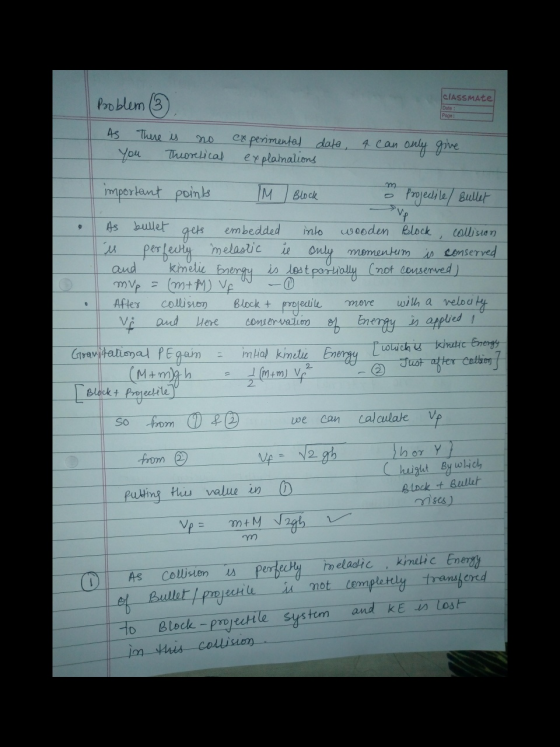 Problem (3)
CLASSMATE
Date:
Page:
As There is no experimental data, I can only give
you Theoretical explainations
important points [M] Block m Projectile/Bullet
Vp
• As bullet gets embedded into wooden Block, collision
is perfectly inelastic ie only momentum is conserved
and kinetic Energy is lost partially (not conserved)
mVp = (m+M) Vf —①
• After collision Block + projectile move with a velocity
Vf and Here conservation of Energy is applied !
Gravitational PE gain = initial kinetic Energy [which is kinetic Energy
Just after collision]
(M+m)gh = 1/2 (M+m) Vf² —②
[Block + Projectile]
so from ① & ② we can calculate Vp
from ② Vf = √2gh {h or Y}
(height By which
Block + Bullet
rises)
putting this value in ①
Vp = (m+M)/m √2gh ✓
① As collision is perfectly inelastic, kinetic Energy
of Bullet/projectile is not completely transfered
to Block-projectile system and KE is lost
in this collision.